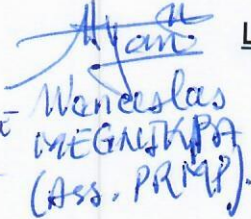 L
Wenceslas
MEGNIKPA
(Ass. PRMP).